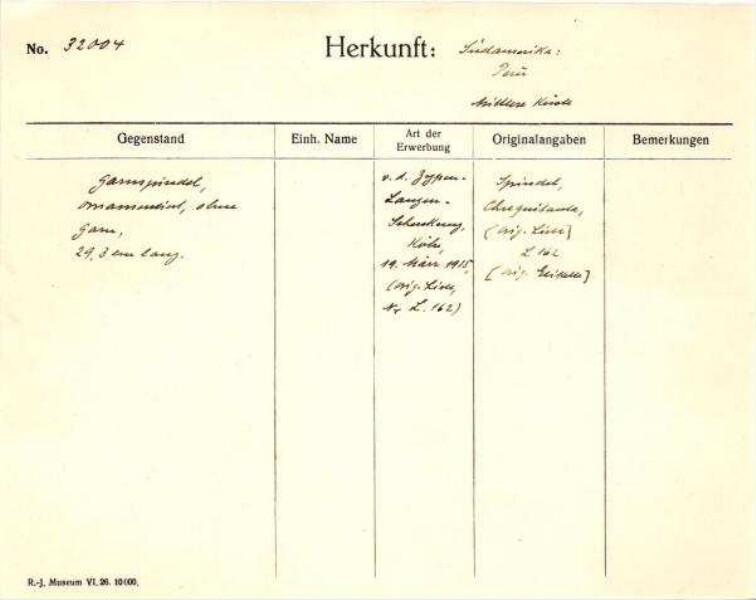 No. 32004
Herkunft: Südamerika:
Perú
Mittlere Küste
Gegenstand
Einh. Name
Art der
Erwerbung
Originalangaben
Bemerkungen
Garnspindel,
ornamentiert, ohne
Garn,
29,3 cm lang.
v. d. Zypen-
Langen-
Schenkung,
Köln,
19. März 1915,
(orig. Liste,
Nr L. 162)
Spindel,
(orig. Liste]
L 162
[orig. Etikette]
R.-J. Museum VI. 26. 10000.